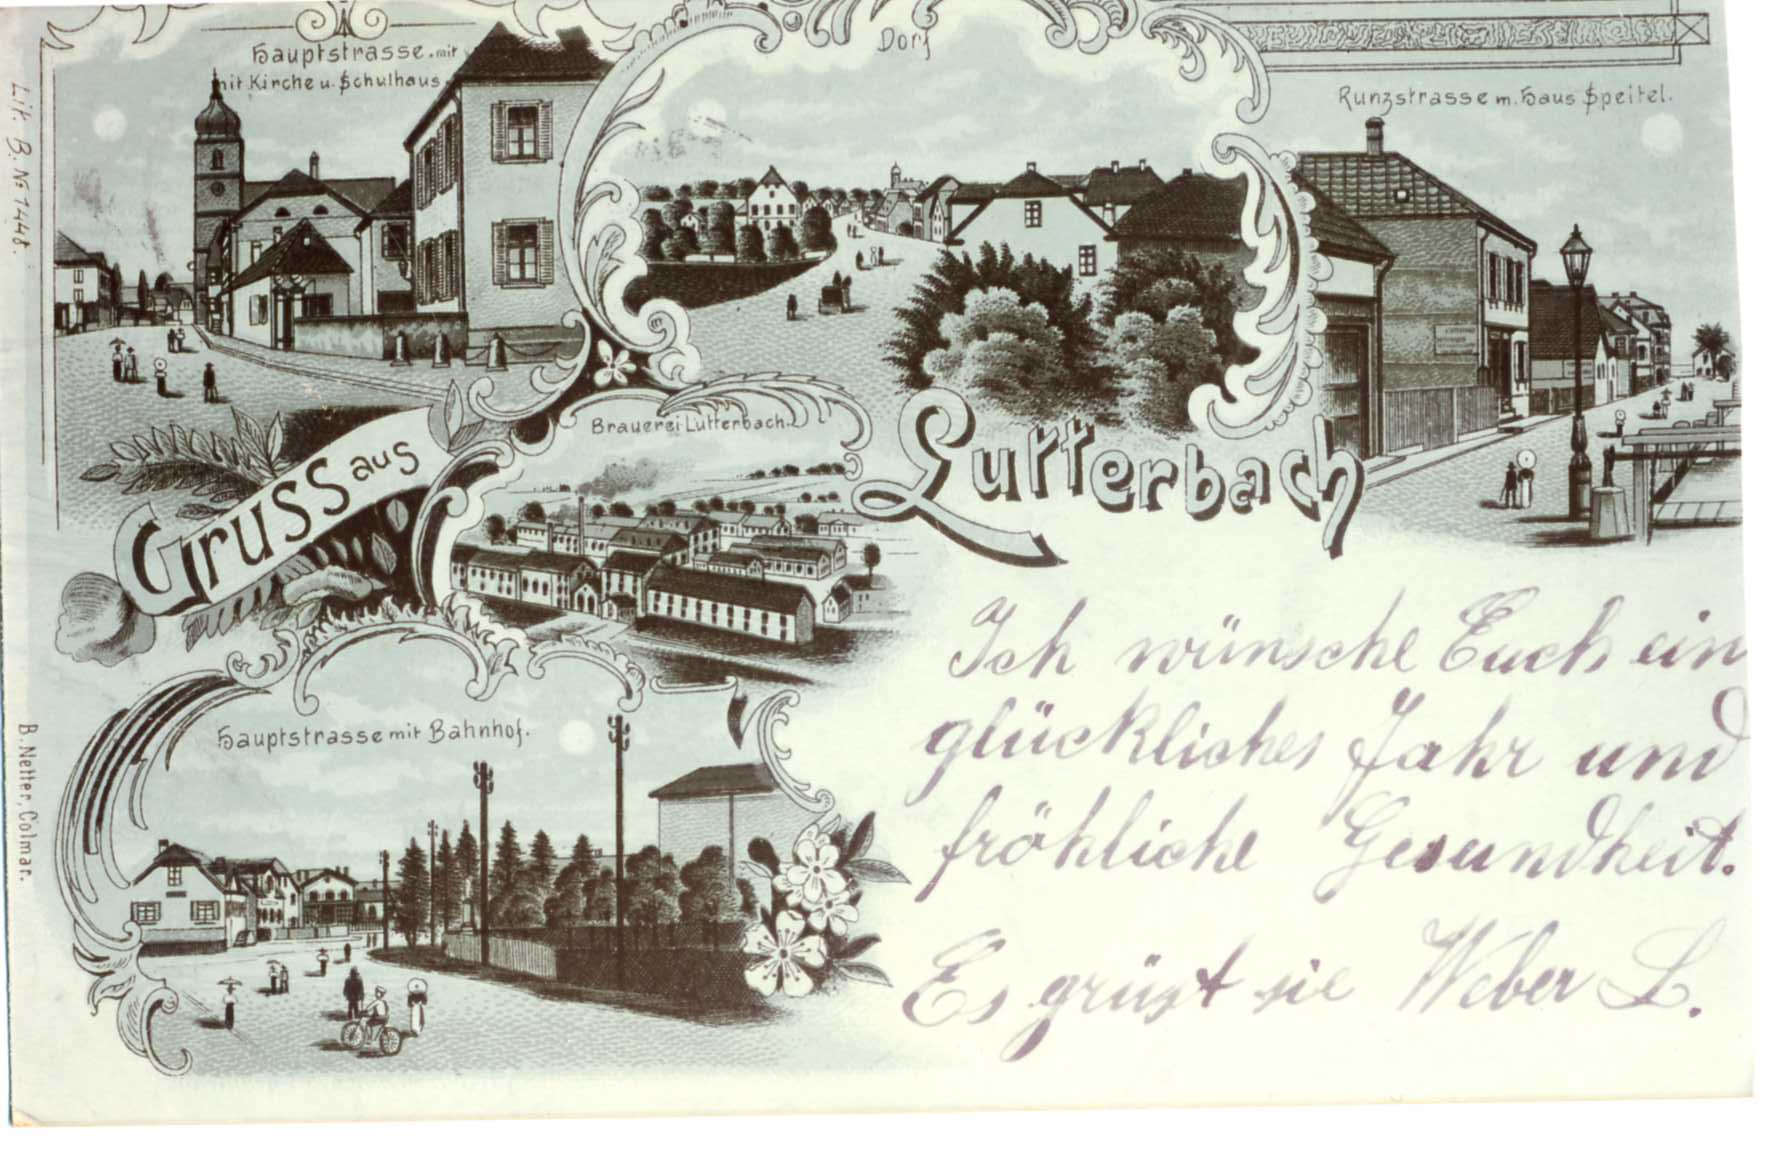 Hauptstrasse mit
mit Kirche u. Schulhaus
Dorf
Runzstrasse m. Haus Speitel.
Lit. B. No 1448.
Gruss aus
Lutterbach
Brauerei Lutterbach.
Hauptstrasse mit Bahnhof.
B. Netter, Colmar.
Ich wünsche Euch ein
glückliches Jahr und
fröhliche Gesundheit.
Es grüst sie Weber L.